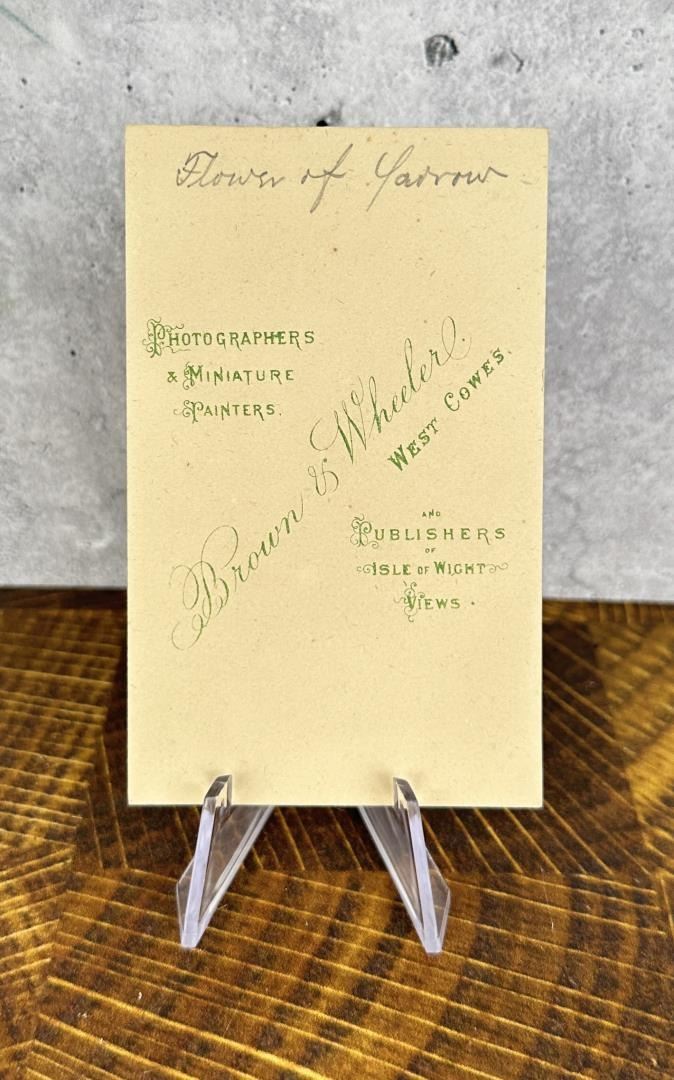 Flower of Yarrow
PHOTOGRAPHERS
& MINIATURE
PAINTERS.
Brown & Wheeler.
WEST COWES.
AND
PUBLISHERS
OF
ISLE OF WIGHT
VIEWS.